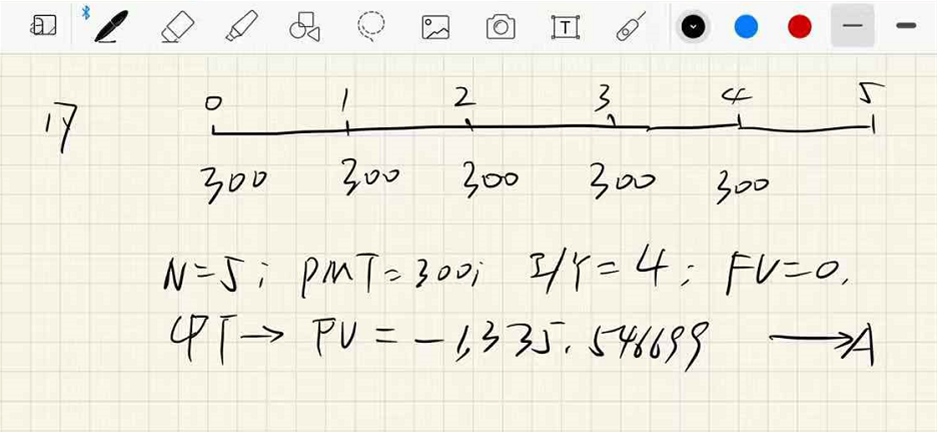 T
17
0 1 2 3 4 5
300 300 300 300 300
N=5; PMT=300; I/Y=4; FV=0.
CPT→ PV = -1,335.546699 →A